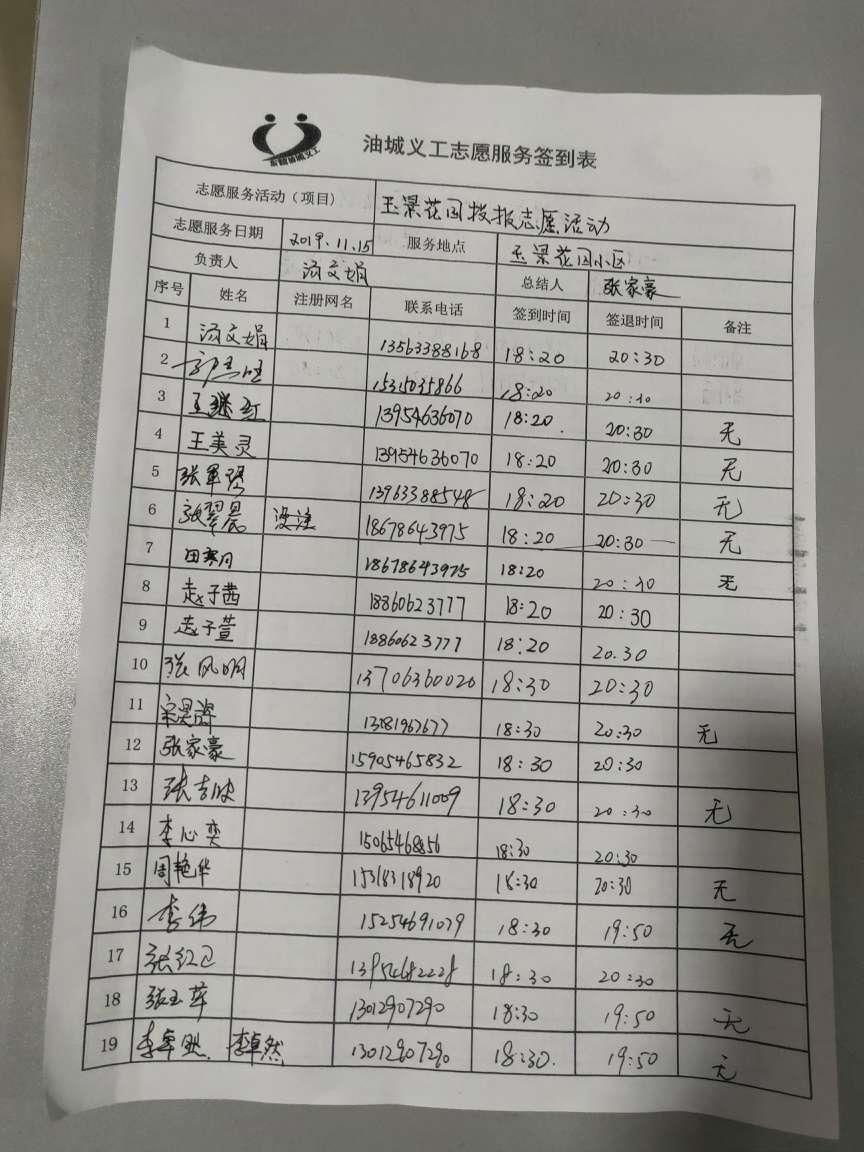 东营油城义工
油城义工志愿服务签到表
志愿服务活动（项目） 玉景花园投报志愿活动
志愿服务日期 2019.11.15 服务地点 玉景花园小区
负责人 汤文娟 总结人 张家豪
序号 姓名 注册网名 联系电话 签到时间 签退时间 备注
1 汤文娟 13563388168 18:20 20:30
2 15315035866 18:20 20:30
3 王继红 13954636070 18:20. 20:30 无
4 王美灵 13954636070 18:20 20:30 无
5 张军强 13963388548 18:20 20:30 无
6 张翠晨 没注 18678643975 18:20 20:30 无
7 田寒月 18678643975 18:20 20:30 无
8 赵子茜 18860623777 18:20 20:30
9 赵子萱 18860623777 18:20 20.30
10 张风明 13706360020 18:30 20:30
11 13181967677 18:30 20:30 无
12 张家豪 15905465832 18:30 20:30
13 13954611009 18:30 20:30 无
14 李心奕 15065468856 18:30 20:30
15 周艳华 15318318920 18:30 20:30 无
16 李伟 15254691079 18:30 19:50 无
17 张红卫 13954682228 18:30 20:30
18 张玉萍 13012907290 18:30 19:50 无
19 李卓然. 李卓然 13012907290 18:30. 19:50 无